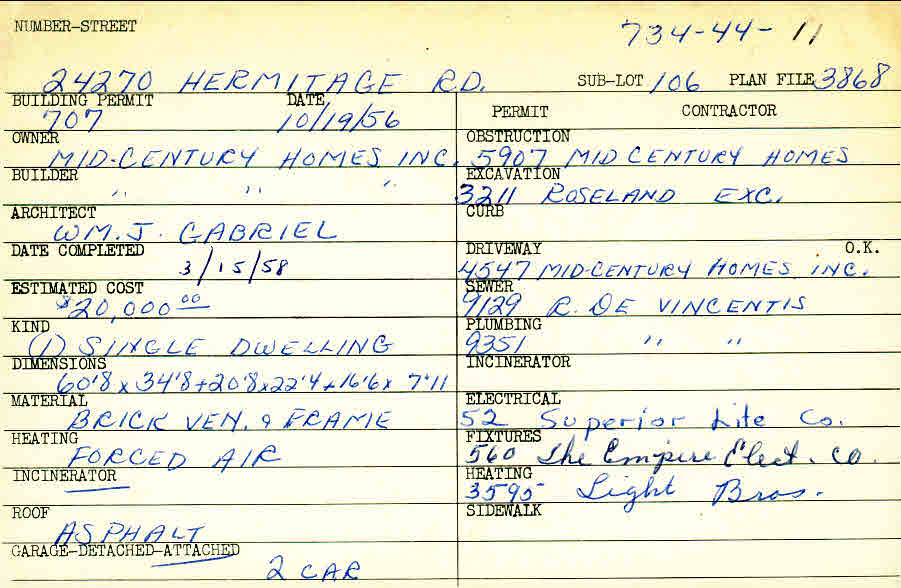 NUMBER-STREET
734-44-11
24270 HERMITAGE RD. SUB-LOT 106 PLAN FILE 3868
BUILDING PERMIT DATE
707 10/19/56
PERMIT CONTRACTOR
OWNER
MID-CENTURY HOMES INC.
OBSTRUCTION
5907 MID CENTURY HOMES
BUILDER
" " "
EXCAVATION
3211 ROSELAND EXC.
ARCHITECT
WM. J. GABRIEL
CURB
DATE COMPLETED
3/15/58
DRIVEWAY O.K.
4547 MID-CENTURY HOMES INC.
ESTIMATED COST
$20,000 00
SEWER
9129 R. DE VINCENTIS
KIND
(1) SINGLE DWELLING
PLUMBING
9351 " "
DIMENSIONS
60'8 x 34'8 + 20'8 x 22'4 + 16'6 x 7'11
INCINERATOR
MATERIAL
BRICK VEN. & FRAME
ELECTRICAL
52 Superior Lite Co.
HEATING
FORCED AIR
FIXTURES
560 The Empire Elect. Co.
INCINERATOR
HEATING
3595 Light Bros.
ROOF
ASPHALT
SIDEWALK
GARAGE-DETACHED-ATTACHED
2 CAR